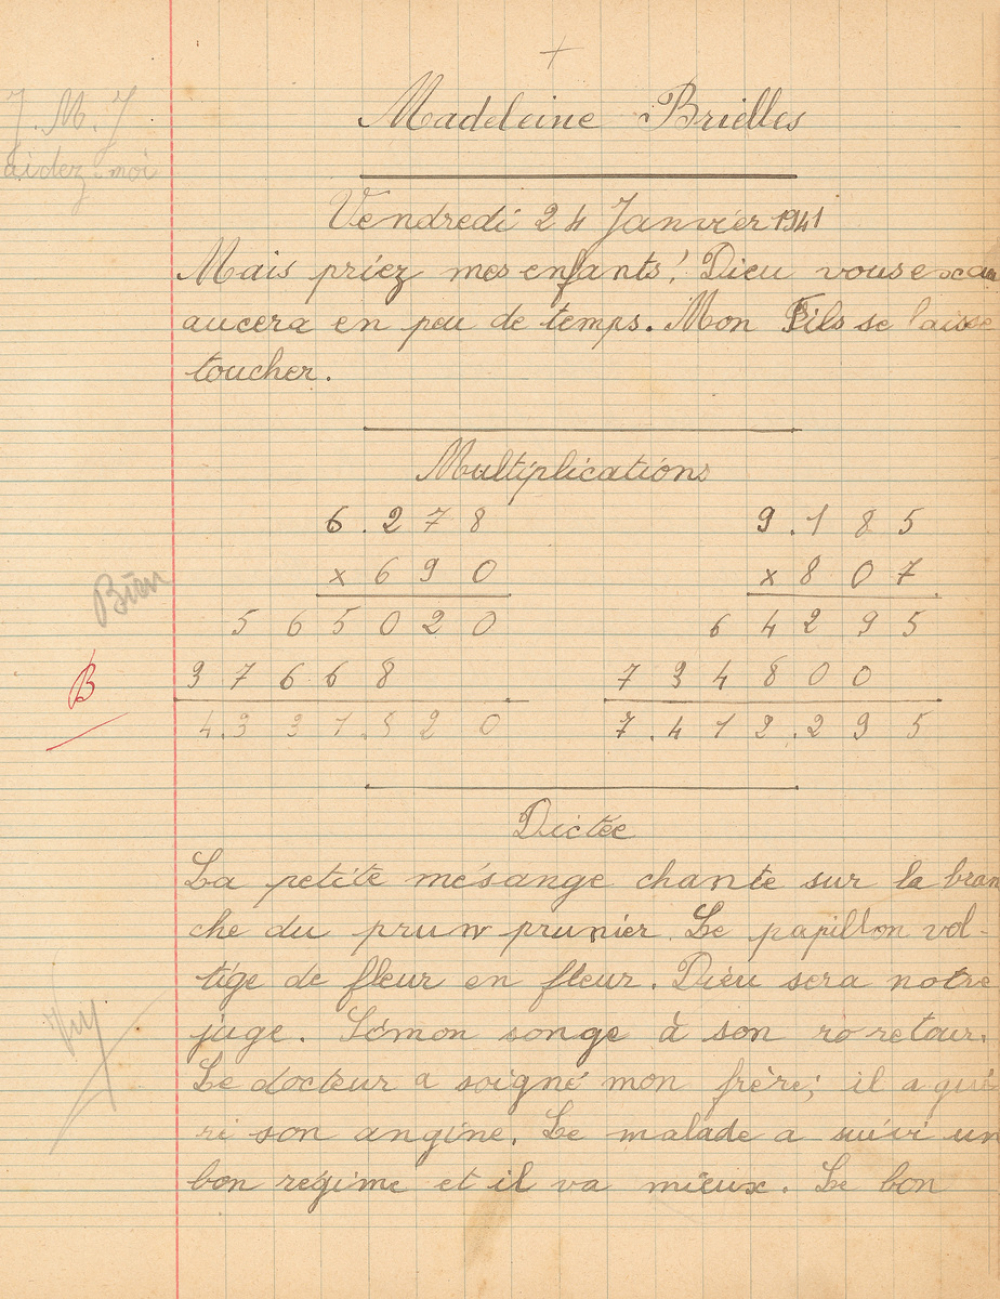 +
J. M. J
aidez-moi
Madeleine Brielles
Vendredi 24 Janvier 1941
Mais priez mes enfants! Dieu vous exau
aucera en peu de temps. Mon Fils se laisse
toucher.
Multiplications
6.278
x 690
565020
37668
4.331.520
Bien
B
9.185
x 807
64295
734800
7.412.295
Dictée
La petite mésange chante sur la bran
che du prun prunier. Le papillon vol-
tige de fleur en fleur. Dieu sera notre
juge. Simon songe à son ro retour.
Le docteur a soigné mon frère; il a gué
ri son angine. Le malade a suivi un
bon régime et il va mieux. Le bon